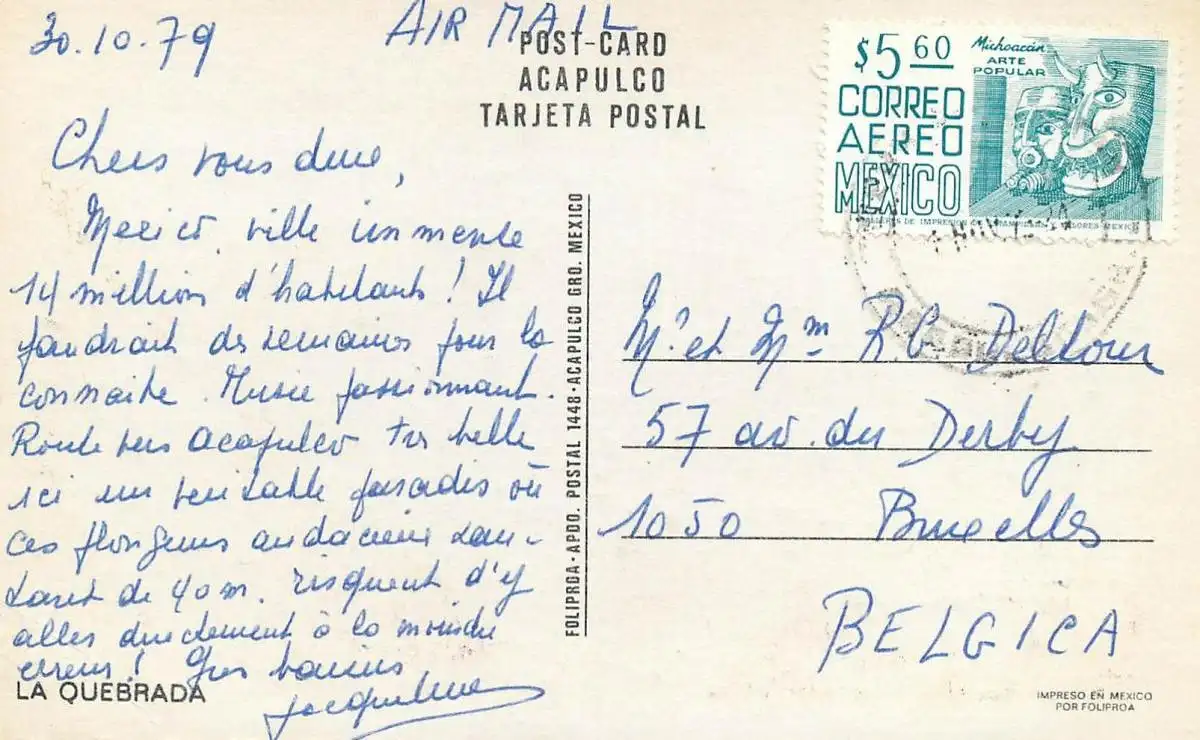 30.10.79
AIR MAIL
POST-CARD
ACAPULCO
TARJETA POSTAL
Chers vous deux,
Mexico, ville immense
14 millions d'habitants! Il
faudrait des semaines pour la
connaître. Musée passionnant.
Route vers Acapulco très belle
ici un véritable paradis où
ces plongeurs audacieux sau-
tant de 40 m. risquent d'y
aller directement à la moindre
erreur! Gros baisers
Jacqueline
LA QUEBRADA
FOLIPROA·APDO. POSTAL 1448·ACAPULCO GRO. MEXICO
$5 60
CORREO
AEREO
MEXICO
Michoacán
ARTE
POPULAR
TALLERES DE IMPRESION DE ESTAMPILLAS Y VALORES-MEXICO
Mr et Mm R.C. Deltour
57 av. du Derby
1050 Bruxelles
BELGICA
IMPRESO EN MEXICO
POR FOLIPROA